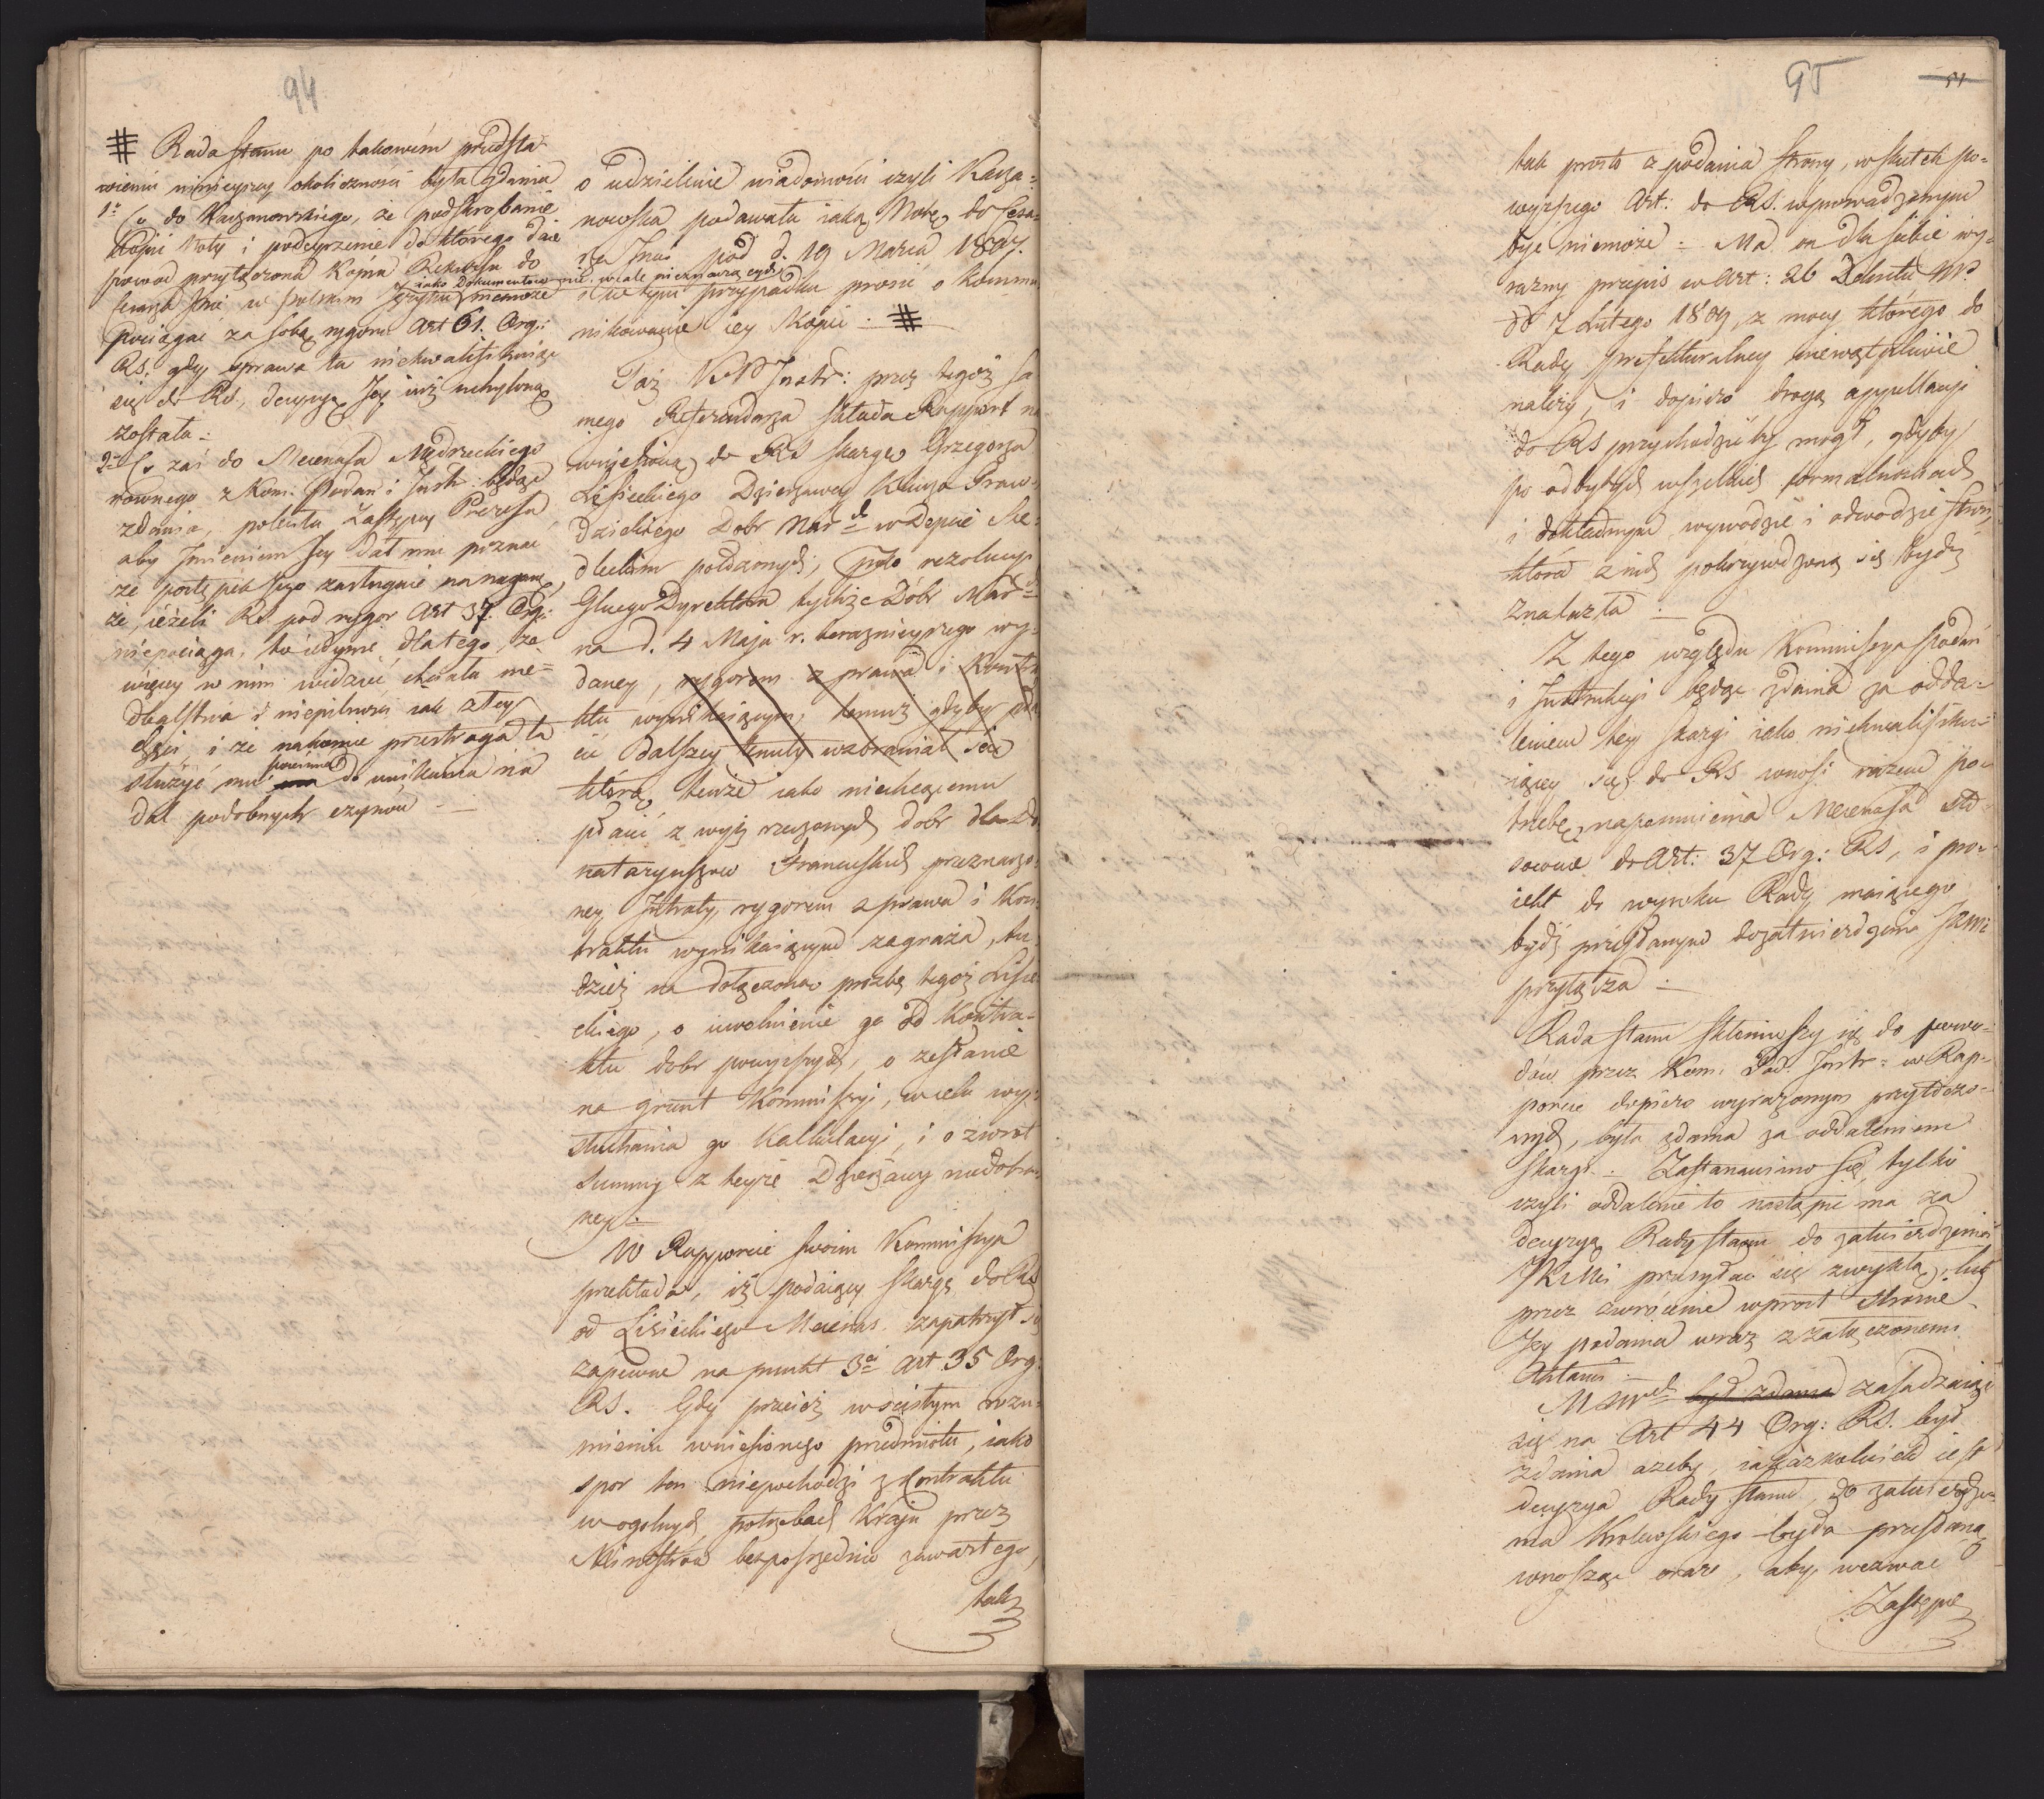 94
# Rada Stanu po takowém przedsta-
wieniu ninieyszey okoliczności była zdania
1º Co do Kaczanowskiego, że podskrobanie
Kopii Noty i podeyrzenie do którego daie
powod przytoczona Kopia Reskryptu do
jako Dokumentow nic wcale nieznaczących
w Polskim języku niemoże
pociągać za sobą rygoru Art 61. Org:
RS: gdy sprawa ta niekwalifikuiąc
się do RS, decyzyą Jey iuż uchyloną
została.
2º Co zaś do Mecenasa Mędrzeckiego
rownego z Kom: Podań i Instr: będąc
zdania, poleciła Zastępcy Prezesa
aby Imieniem Jey dał mu poznać
że postępek Jego zasługuie na naganę,
że, ieżeli RS. pod rygor Art 37. Org:
niepociąga, to iedynie dlatego, że
więcey w nim widzieć chciała nie-
dbalstwa i niepilności iak złey
chęci, i że nakoniec przestroga ta
służyć mu powinna do unikania na
dal podobnych czynów —
o udzielenie wiadomości czyli Kacza-
nowska podawała iaką Notę do Cesa-
rza Jmci pod d. 19 Marca 1807.
i w tym przypadku prosić o kommu-
nikowanie iey Kopii. #
Taż KPInstr: przez tegoż sa-
mego Referendarza składa Rapport na
wniesioną do RS skargę Grzegorza
Lisieckiego Dzierżawcy Klucza Graw-
dzickiego Dobr Narod w Depcie Sie-
dleckim położonych, przeciwko rezolucyi
Głnego Dyrektora tychże Dóbr Nard
na d. 4 Maja r. teraznieyszego wy-
daney, rygorem z prawa i Kontra-
ktu wynikaiącym, temuż gdyby pła-
cić dalszey tenuty wzbraniał się
którą tenże iako niechcącemu
płacić z wyż rzeczonych dobr dla Do-
nataryuszow Francuskich przeznaczo-
ney Intraty, rygorem z prawa i Kon-
traktu wynikaiącym zagraża, tu-
dzież na dołączoną prozbę tegoż Lisie-
ckiego, o uwolnienie go od Kontra-
ktu dobr powyższych, o zesłanie
na grunt Kommissyi, w celu wy-
słuchania go Kalkulacyi, i o zwrot
Summy z teyże Dzierżawy niedobra-
ney. —
W Rapporcie swoim Kommissya
przekłada, iż podaiący skargę do RS
od Lisieckiego Mecenas zapatrzył się
zapewne na punkt 3ci Art. 35 Org:
RS. Gdy przecież w ścisłym rozu-
mieniu wniesionego przedmiotu, iako
spor ten niepochodzi z Kontraktu
w ogolnych potrzebach Kraju przez
Ministra bezpośrzednio zawartego,
tak
95
51
tak prosto z podania Strony, w skutek po-
wyższego Art: do RS. wprowadzonym
być niemoże. Ma on dla siebie wy-
razny przepis w Art: 26 Dekretu NP.
do 7 Lutego 1809, z mocy którego do
Rady Prefekturalney niewątpliwie
należy, i dopiero drogą appellacyi
do RS przychodzić by mogł, gdyby
po odbytych wszelkich formalnościach
i dokładnym wywodzie i odwodzie stron,
ktora z nich pokrzywdzoną się bydź
znalazła —
Z tego względu Kommissya Podań
i Instrukcyi będąc zdania za odda-
leniem tey skargi iako niekwalifiku-
iącey się do RS wnosi razem po-
trzebę napomnienia Mecenasa sto-
sownie do Art: 37 Org: RS, i pro-
iekt do wyroku Rady maiącego
bydź przesłanym do zatwierdzenia JKMci
przyłącza —
Rada Stanu skłoniwszy się do powo-
dów przez Kom: Pod: Instr: w Rap-
porcie dopiero wyrażonym przytoczo-
nych, była zdania za oddaleniem
Skargi. Zastanawiano się tylko
czyli oddalenie to nastąpić ma za
decyzyą Rady Stanu do zatwierdzenia
JKMci przesyłać się zwykłą, lub
przez zwrócenie wprost stronie
Jey podania wraz z załączonemi
Aktami.
M Swch był zdania zasadzaiąc
się na Art 44 Org: RS. był
zdania ażeby, iakażkolwiek iest
decyzya Rady Stanu, do zatwierdze-
nia Krolewskiego była przesłana
wnosząc oraz, aby wezwać
Zastępcę